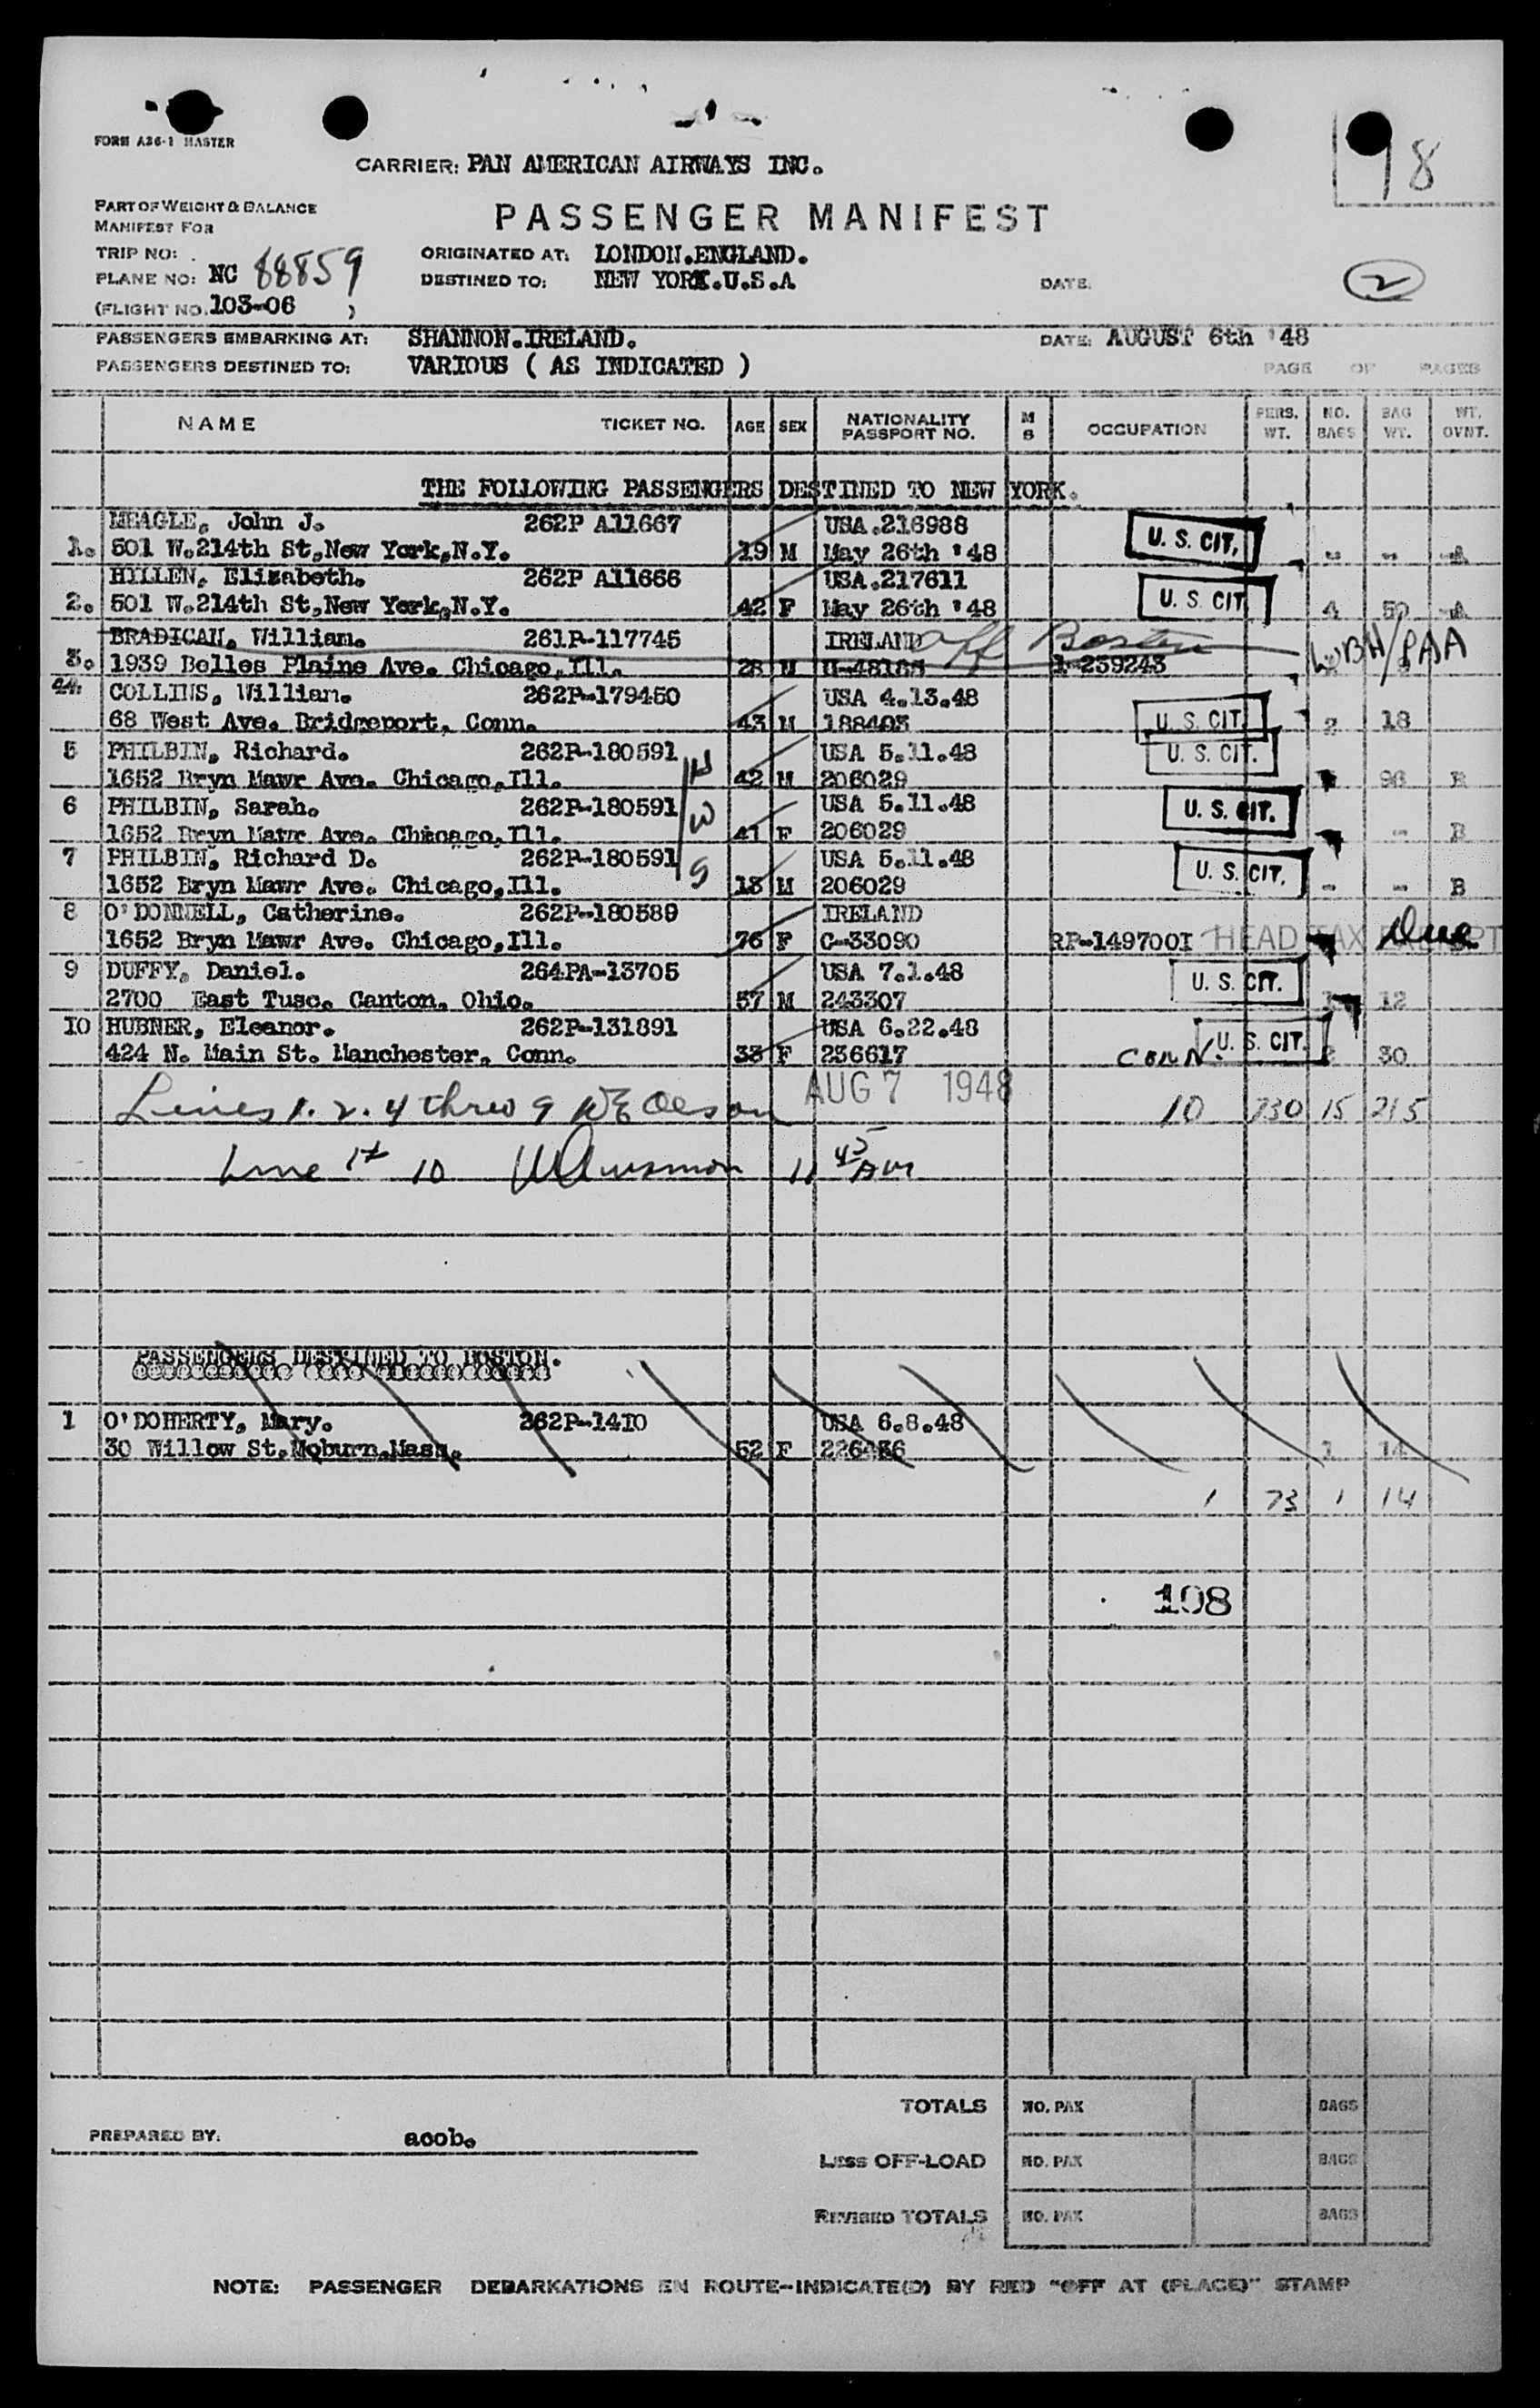 FORM A36-1 MASTER
CARRIER: PAN AMERICAN AIRWAYS INC.
98
PART OF WEIGHT & BALANCE
MANIFEST FOR
PASSENGER MANIFEST
TRIP NO:
ORIGINATED AT: LONDON.ENGLAND.
PLANE NO: NC 88859
DESTINED TO: NEW YORK.U.S.A
DATE:
2
(FLIGHT NO. 103-06 )
PASSENGERS EMBARKING AT: SHANNON.IRELAND.
DATE: AUGUST 6th '48
PASSENGERS DESTINED TO: VARIOUS ( AS INDICATED )
PAGE OF PAGES
NAME TICKET NO. AGE SEX NATIONALITY PASSPORT NO. M S OCCUPATION PERS. WT. NO. BAGS BAG WT. WT. OVNT.
THE FOLLOWING PASSENGERS DESTINED TO NEW YORK.
MEAGLE, John J. 262P A11667 USA.216988 U. S. CIT.
1. 501 W.214th St,New York,N.Y. 19 M May 26th '48 - - A
HYLLEN, Elizabeth. 262P A11666 USA.217611 U. S. CIT
2. 501 W.214th St,New York,N.Y. 42 F May 26th '48 4 50 A
BRADICAN, William. 261P-117745 IRELAND off Boston WBH/PAA
3. 1939 Belles Plaine Ave. Chicago,Ill. 28 M I-239243
COLLINS, William. 262P-179450 USA 4.13.48
68 West Ave. Bridgeport, Conn. 43 M 188403 U. S. CIT 2 18
5 PHILBIN, Richard. 262P-180591 H USA 5.11.48 U. S. CIT.
1652 Bryn Mawr Ave. Chicago,Ill. 42 M 206029 96 B
6 PHILBIN, Sarah. 262P-180591 W USA 5.11.48 U. S. CIT.
1652 Bryn Mawr Ave. Chicago,Ill. 41 F 206029 - B
7 PHILBIN, Richard D. 262P-180591 S USA 5.11.48 U. S. CIT.
1652 Bryn Mawr Ave. Chicago,Ill. 13 M 206029 - - B
8 O'DONNELL, Catherine. 262P-180589 IRELAND
1652 Bryn Mawr Ave. Chicago,Ill. 76 F C-33090 RP-149700I HEAD TAX EXEMPT
9 DUFFY, Daniel. 264PA-13705 USA 7.1.48 U. S. CIT.
2700 East Tusc. Canton, Ohio. 57 M 243307 1 12
10 HUBNER, Eleanor. 262P-131891 USA 6.22.48 U. S. CIT.
424 N. Main St. Manchester, Conn. 33 F 236617 CONN. 2 30
Lines 1. 2. 4 threo 9 AUG 7 1948 10 730 15 215
Line 10 11 45 AM
PASSENGERS DESTINED TO BOSTON.
1 O'DOHERTY, Mary. 262P-1410 USA 6.8.48
30 Willow St.Woburn.Mass. 52 F 226436 1 14
1 73 1 14
108
TOTALS NO. PAX BAGS
PREPARED BY: acob.
LESS OFF-LOAD NO. PAX BAGS
REVISED TOTALS NO. PAX BAGS
NOTE: PASSENGER DEBARKATIONS EN ROUTE-INDICATE(D) BY RED "OFF AT (PLACE)" STAMP